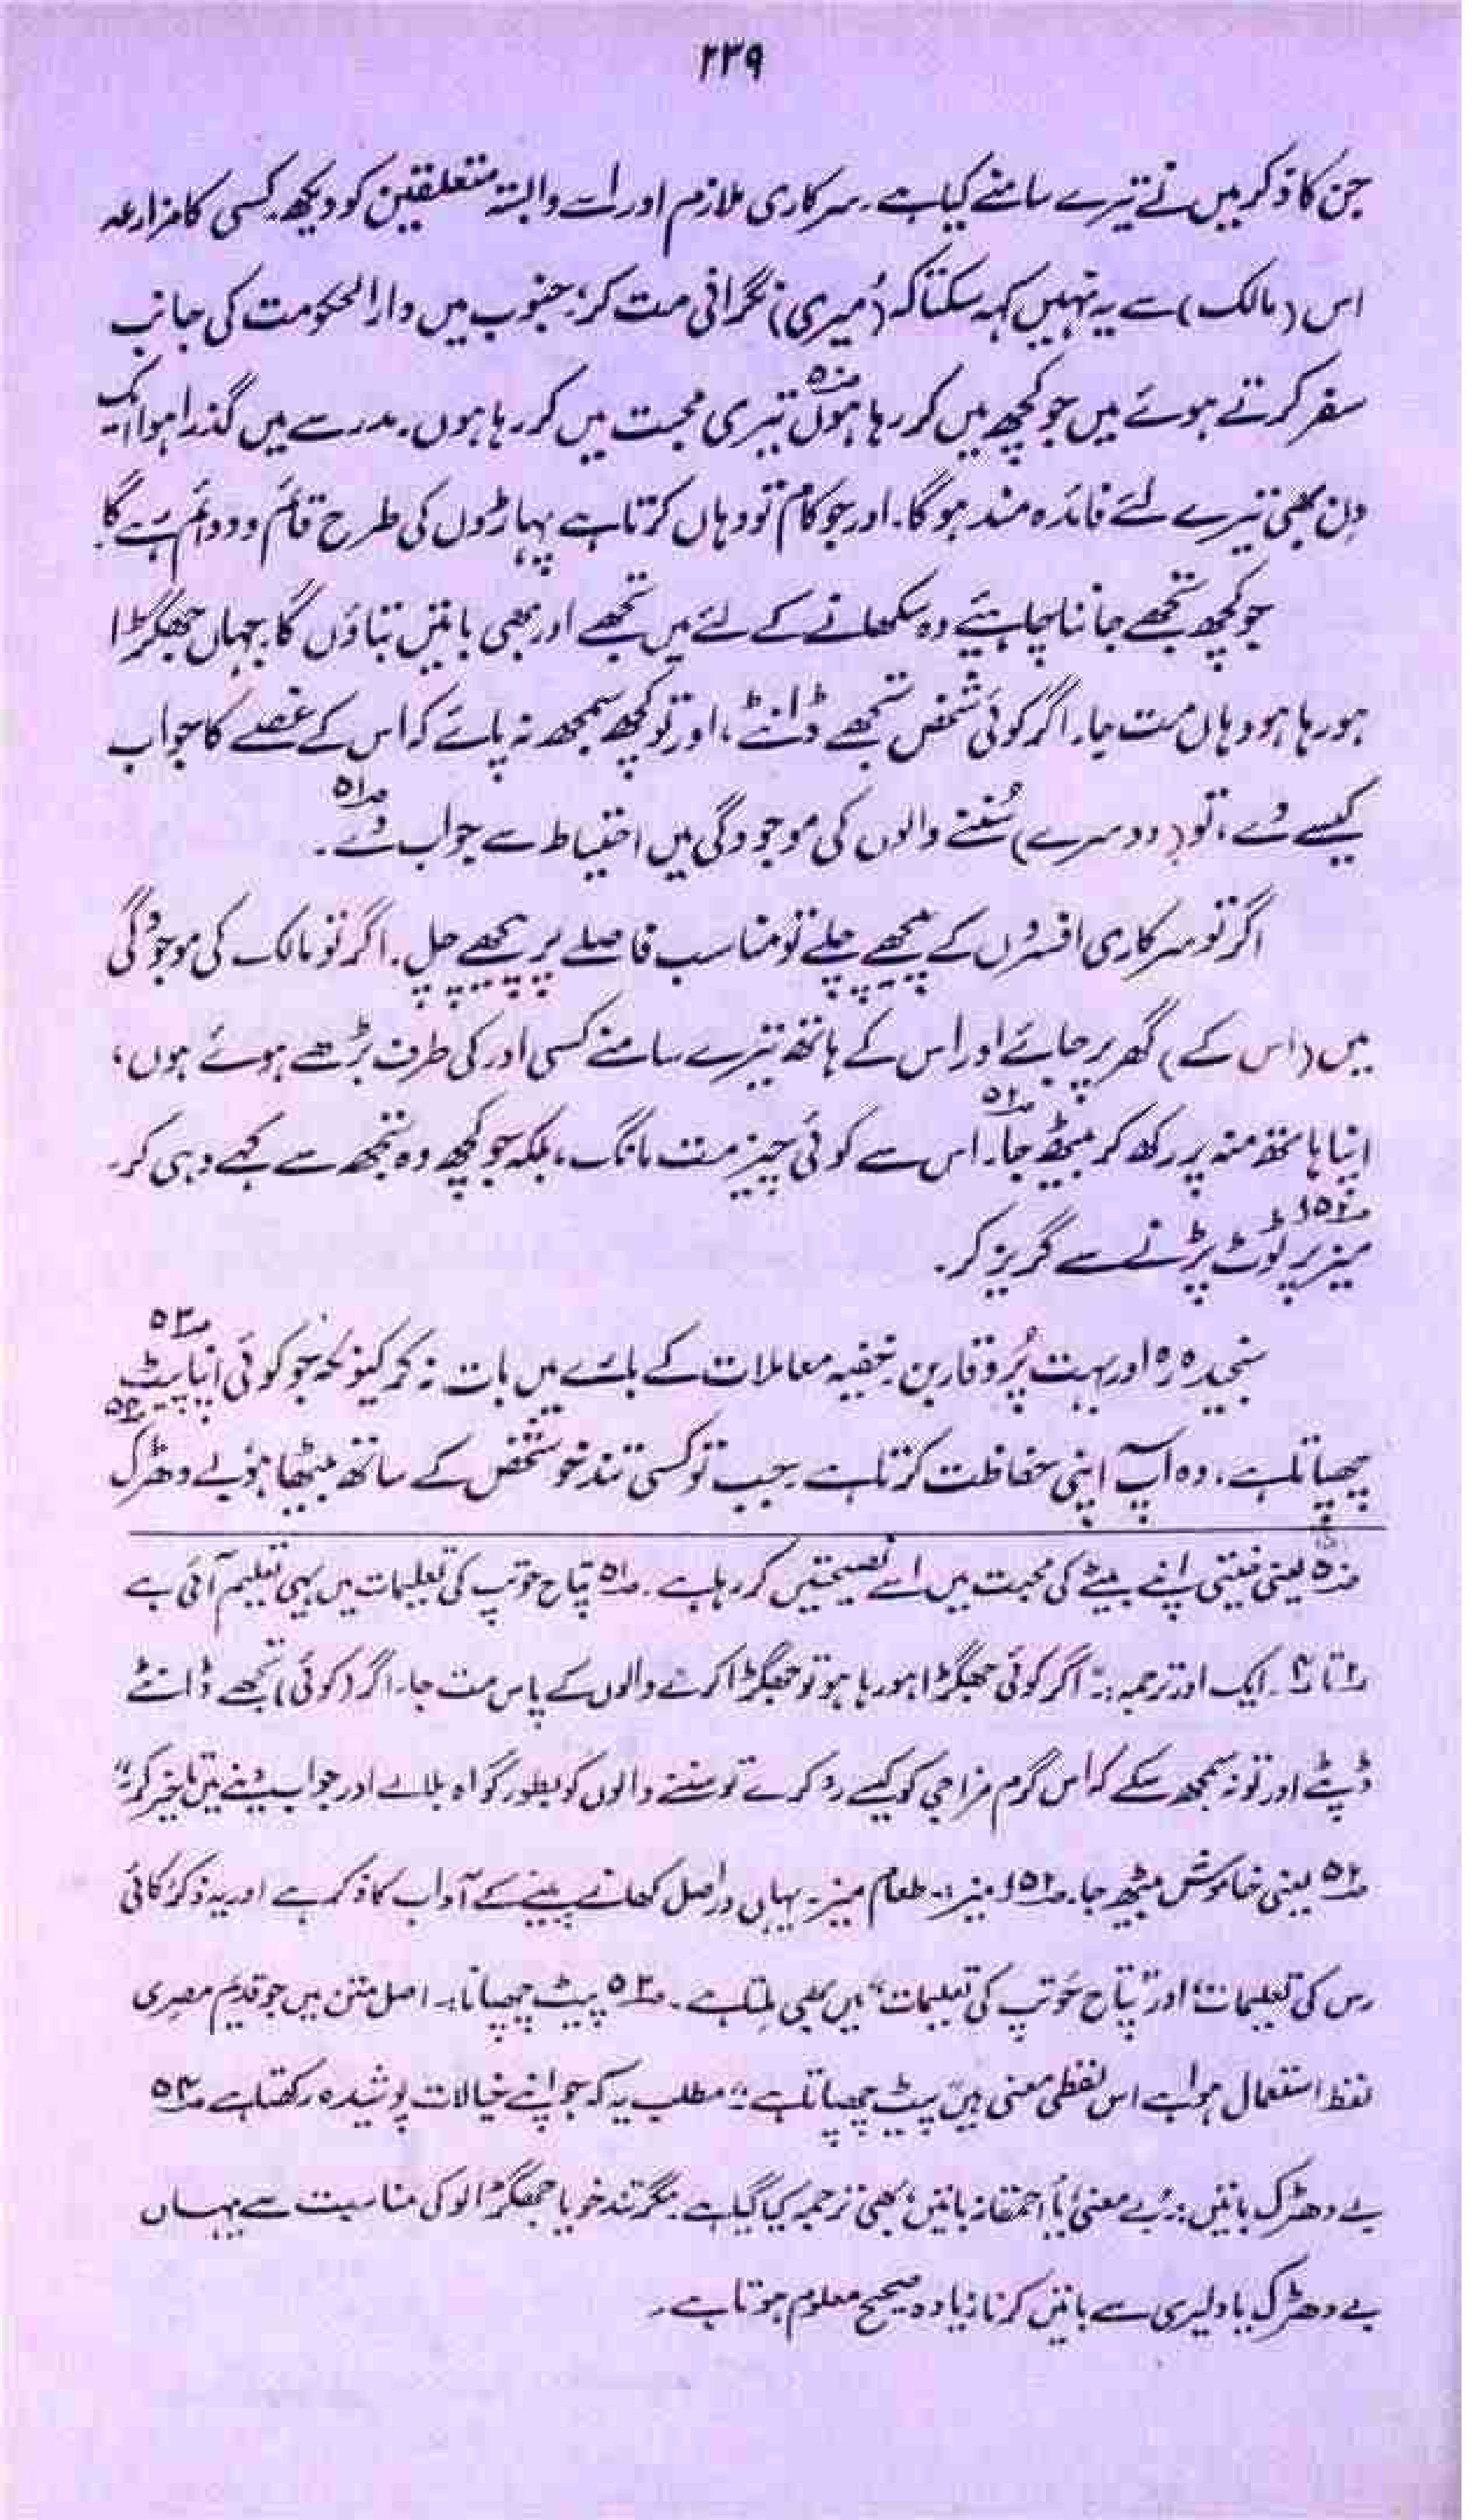 ۲۳۹
جن کا ذکر میں نے تیرے سامنے کیا ہے۔ سرکاری ملازم اور اسے وابستہ متعلقین کو دیکھ۔ کسی کا مزارعہ
اس (مالک) سے یہ نہیں کہہ سکتا کہ (میری) نگرانی مت کر؛ جنوب میں دارالحکومت کی جانب
سفر کرتے ہوئے میں جو کچھ میں کر رہا ہوں ۵۰ تیری محبت میں کر رہا ہوں۔ مدرسے میں گذرا ہوا ایک
دن بھی تیرے لئے فائدہ مند ہوگا۔ اور جو کام تو وہاں کرتا ہے پہاڑوں کی طرح قائم و دائم رہے گا۔
جو کچھ تجھے جاننا چاہیئے وہ سکھانے کے لئے میں تجھے اور بھی باتیں بتاؤں گا۔ جہاں جھگڑا
ہو رہا ہو وہاں مت جا۔ اگر کوئی شخص تجھے ڈانٹے، اور تو کچھ سمجھ نہ پائے کہ اس کے غصے کا جواب
کیسے دے، تو (دوسرے) سُننے والوں کی موجودگی میں احتیاط سے جواب دے ۵۱۔
اگر تو سرکاری افسروں کے پیچھے چلے تو مناسب فاصلے پر پیچھے چل۔ اگر تو مالک کی موجودگی
میں (اس کے) گھر پر جائے اور اس کے ہاتھ تیرے سامنے کسی اور کی طرف بڑھے ہوئے ہوں،
اپنا ہاتھ منہ پر رکھ کر بیٹھ جا ۵۲۔ اس سے کوئی چیز مت مانگ، بلکہ جو کچھ وہ تجھ سے کہے وہی کر۔
میز ۵۲ا پر ٹوٹ پڑنے سے گریز کر۔
سنجیدہ رہ اور بہت پُروقار بن۔ خفیہ معاملات کے بارے میں بات نہ کر کیونکہ جو کوئی اپنا پیٹ ۵۳
چھپاتا ہے، وہ آپ اپنی حفاظت کرتا ہے۔ جب تو کسی تند خو شخص کے ساتھ بیٹھا ہو بے دھڑک ۵۴
۵۰ یعنی خیتی اپنے بیٹے کی محبت میں اسے نصیحتیں کر رہا ہے۔ ۵۱ پتاح حوتپ کی تعلیمات میں یہی تعلیم آئی ہے
۲ تا ۴۔ ایک اور ترجمہ:۔ "اگر کوئی جھگڑا ہو رہا ہو تو جھگڑا کرنے والوں کے پاس مت جا۔ اگر (کوئی) تجھے ڈانٹے
ڈپٹے اور تو نہ سمجھ سکے کہ اس گرم مزاجی کو کیسے رد کرے تو سننے والوں کو بطور گواہ بلا لے اور جواب دینے میں تاخیر کر"۔
۵۲ یعنی خاموش بیٹھ جا۔ ۵۲ا میز:۔ طعام میز۔ یہاں دراصل کھانے پینے کے آداب کا ذکر ہے اور یہ ذکر "کائی
رس کی تعلیمات" اور "پتاح حوتپ کی تعلیمات" میں بھی ملتا ہے۔ ۵۳ پیٹ چھپاتا:۔ اصل متن میں جو قدیم مصری
لفظ استعمال ہوا ہے اس لفظی معنی ہیں "پیٹ چھپاتا ہے"۔ مطلب یہ کہ جو اپنے خیالات پوشیدہ رکھتا ہے ۵۴
بے دھڑک باتیں:۔ "بے معنی" یا "احمقانہ باتیں" بھی ترجمہ کیا گیا ہے۔ مگر تند خو یا جھگڑالو کی مناسبت سے یہاں
بے دھڑک یا دلیری سے باتیں کرنا زیادہ صحیح معلوم ہوتا ہے۔